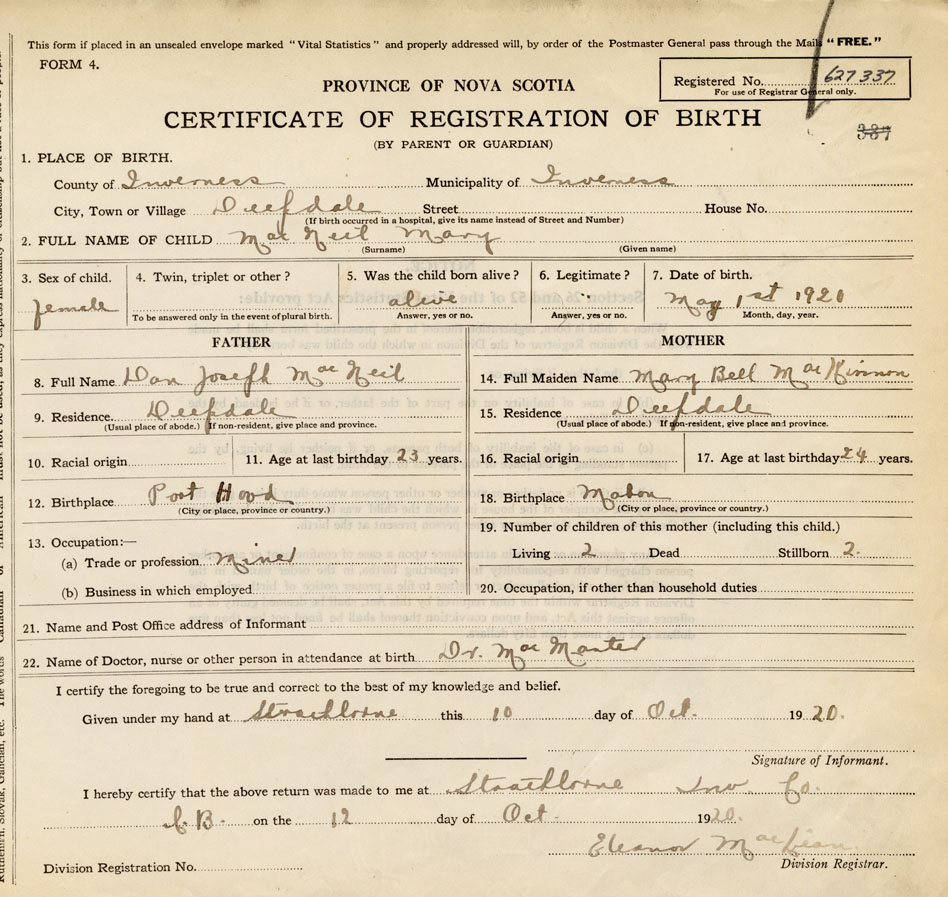 This form if placed in an unsealed envelope marked "Vital Statistics" and properly addressed will, by order of the Postmaster General pass through the Mails "FREE."
FORM 4.
Registered No. 627337
For use of Registrar General only.
PROVINCE OF NOVA SCOTIA
CERTIFICATE OF REGISTRATION OF BIRTH
337
(BY PARENT OR GUARDIAN)
1. PLACE OF BIRTH.
County of Inverness Municipality of Inverness
City, Town or Village Deepdale Street House No.
(If birth occurred in a hospital, give its name instead of Street and Number)
2. FULL NAME OF CHILD MacNeil Mary
(Surname) (Given name)
3. Sex of child. 4. Twin, triplet or other? 5. Was the child born alive? 6. Legitimate? 7. Date of birth.
female alive May 1st 1920
To be answered only in the event of plural birth. Answer, yes or no. Answer, yes or no. Month, day, year.
FATHER MOTHER
8. Full Name Dan Joseph MacNeil 14. Full Maiden Name Mary Bell MacKinnon
9. Residence Deepdale 15. Residence Deepdale
(Usual place of abode.) If non-resident, give place and province. (Usual place of abode.) If non-resident, give place and province.
10. Racial origin 11. Age at last birthday 23 years. 16. Racial origin 17. Age at last birthday 24 years.
12. Birthplace Port Hood 18. Birthplace Mabou
(City or place, province or country.) (City or place, province or country.)
13. Occupation:— 19. Number of children of this mother (including this child.)
(a) Trade or profession Miner Living 2 Dead Stillborn 2.
(b) Business in which employed 20. Occupation, if other than household duties
21. Name and Post Office address of Informant
22. Name of Doctor, nurse or other person in attendance at birth Dr. Mac
I certify the foregoing to be true and correct to the best of my knowledge and belief.
Given under my hand at Strathlorne this 10 day of Oct. 1920.
Signature of Informant.
I hereby certify that the above return was made to me at Strathlorne Inv Co.
C.B. on the 12 day of Oct. 1920.
Eleanor MacLean
Division Registrar.
Division Registration No.